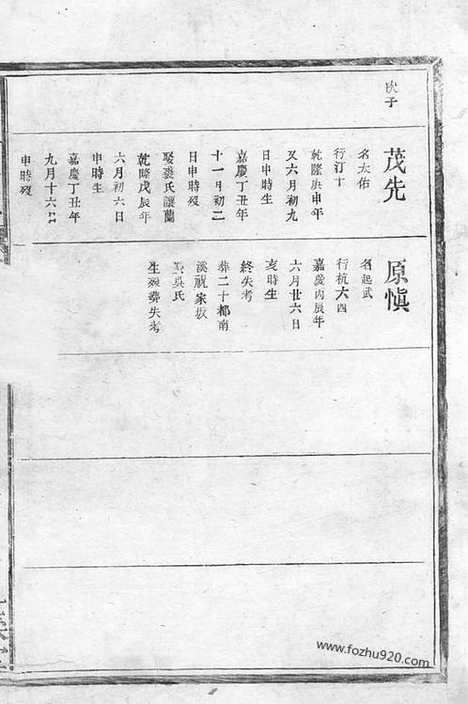 次子
茂先
名太佑
行汀十
乾隆庚申年
又六月初九
日申時生
嘉慶丁丑年
十一月初二
日申時歿
娶裘氏讓蘭
乾隆戊辰年
六月初六日
申時生
嘉慶丁丑年
九月十六日
申時歿
原愼
名起武
行杭六四
嘉慶丙辰年
六月廿六日
亥時生
終失考
葬二十都南
溪祝家坂
娶吳氏
生歿葬失考
www.fozhu920.com